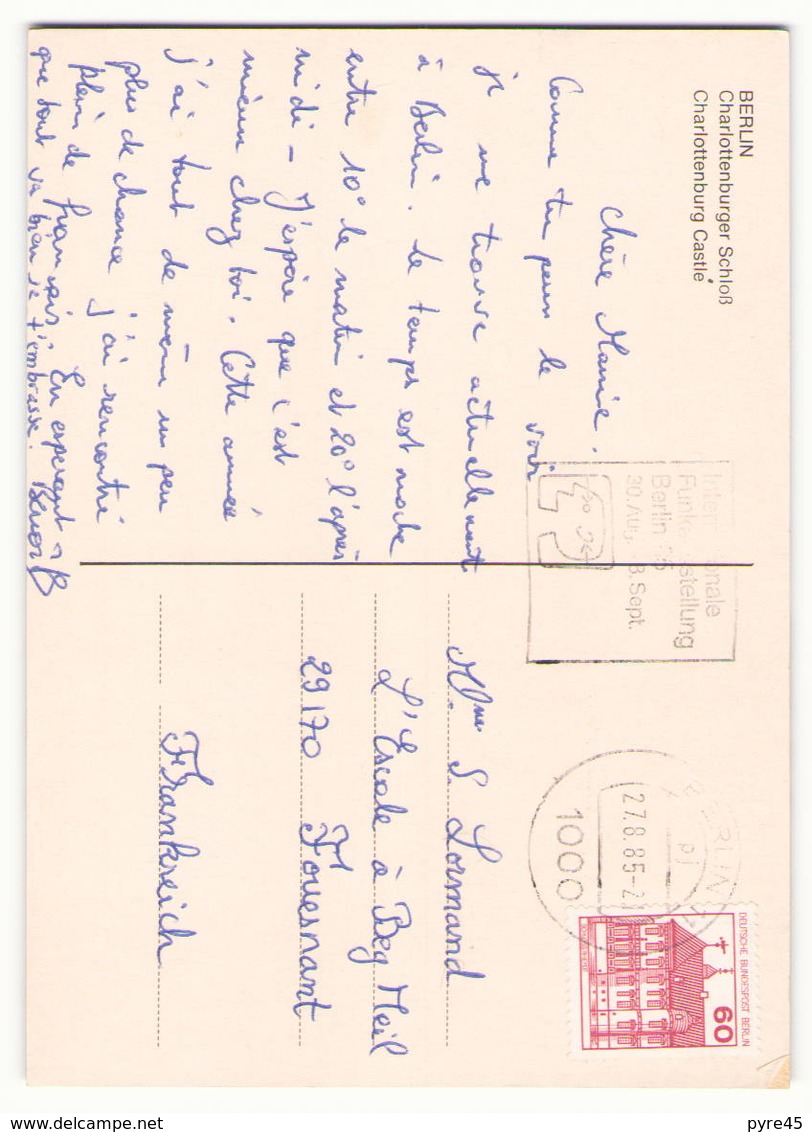 BERLIN
Charlottenburger Schloß
Charlottenburg Castle
Chère Mamie,
Comme tu peux le voir
je me trouve actuellement
à Berlin. Le temps est moche
entre 10° le matin et 20° l'après
midi - J'espère que c'est
mieux chez toi. Cette année
j'ai tout de même un peu
plus de chance j'ai rencontré
plein de français. En espérant
que tout va bien je t'embrasse. Benoit
Internationale
Funkausstellung
Berlin 85
30. Aug. - 8. Sept.
BERLIN
27.8.85-21
1000
DEUTSCHE BUNDESPOST BERLIN
60
Mme S. Lormand
L'Escale à Beg Meil
29170 Fouesnant
Frankreich
pyre45